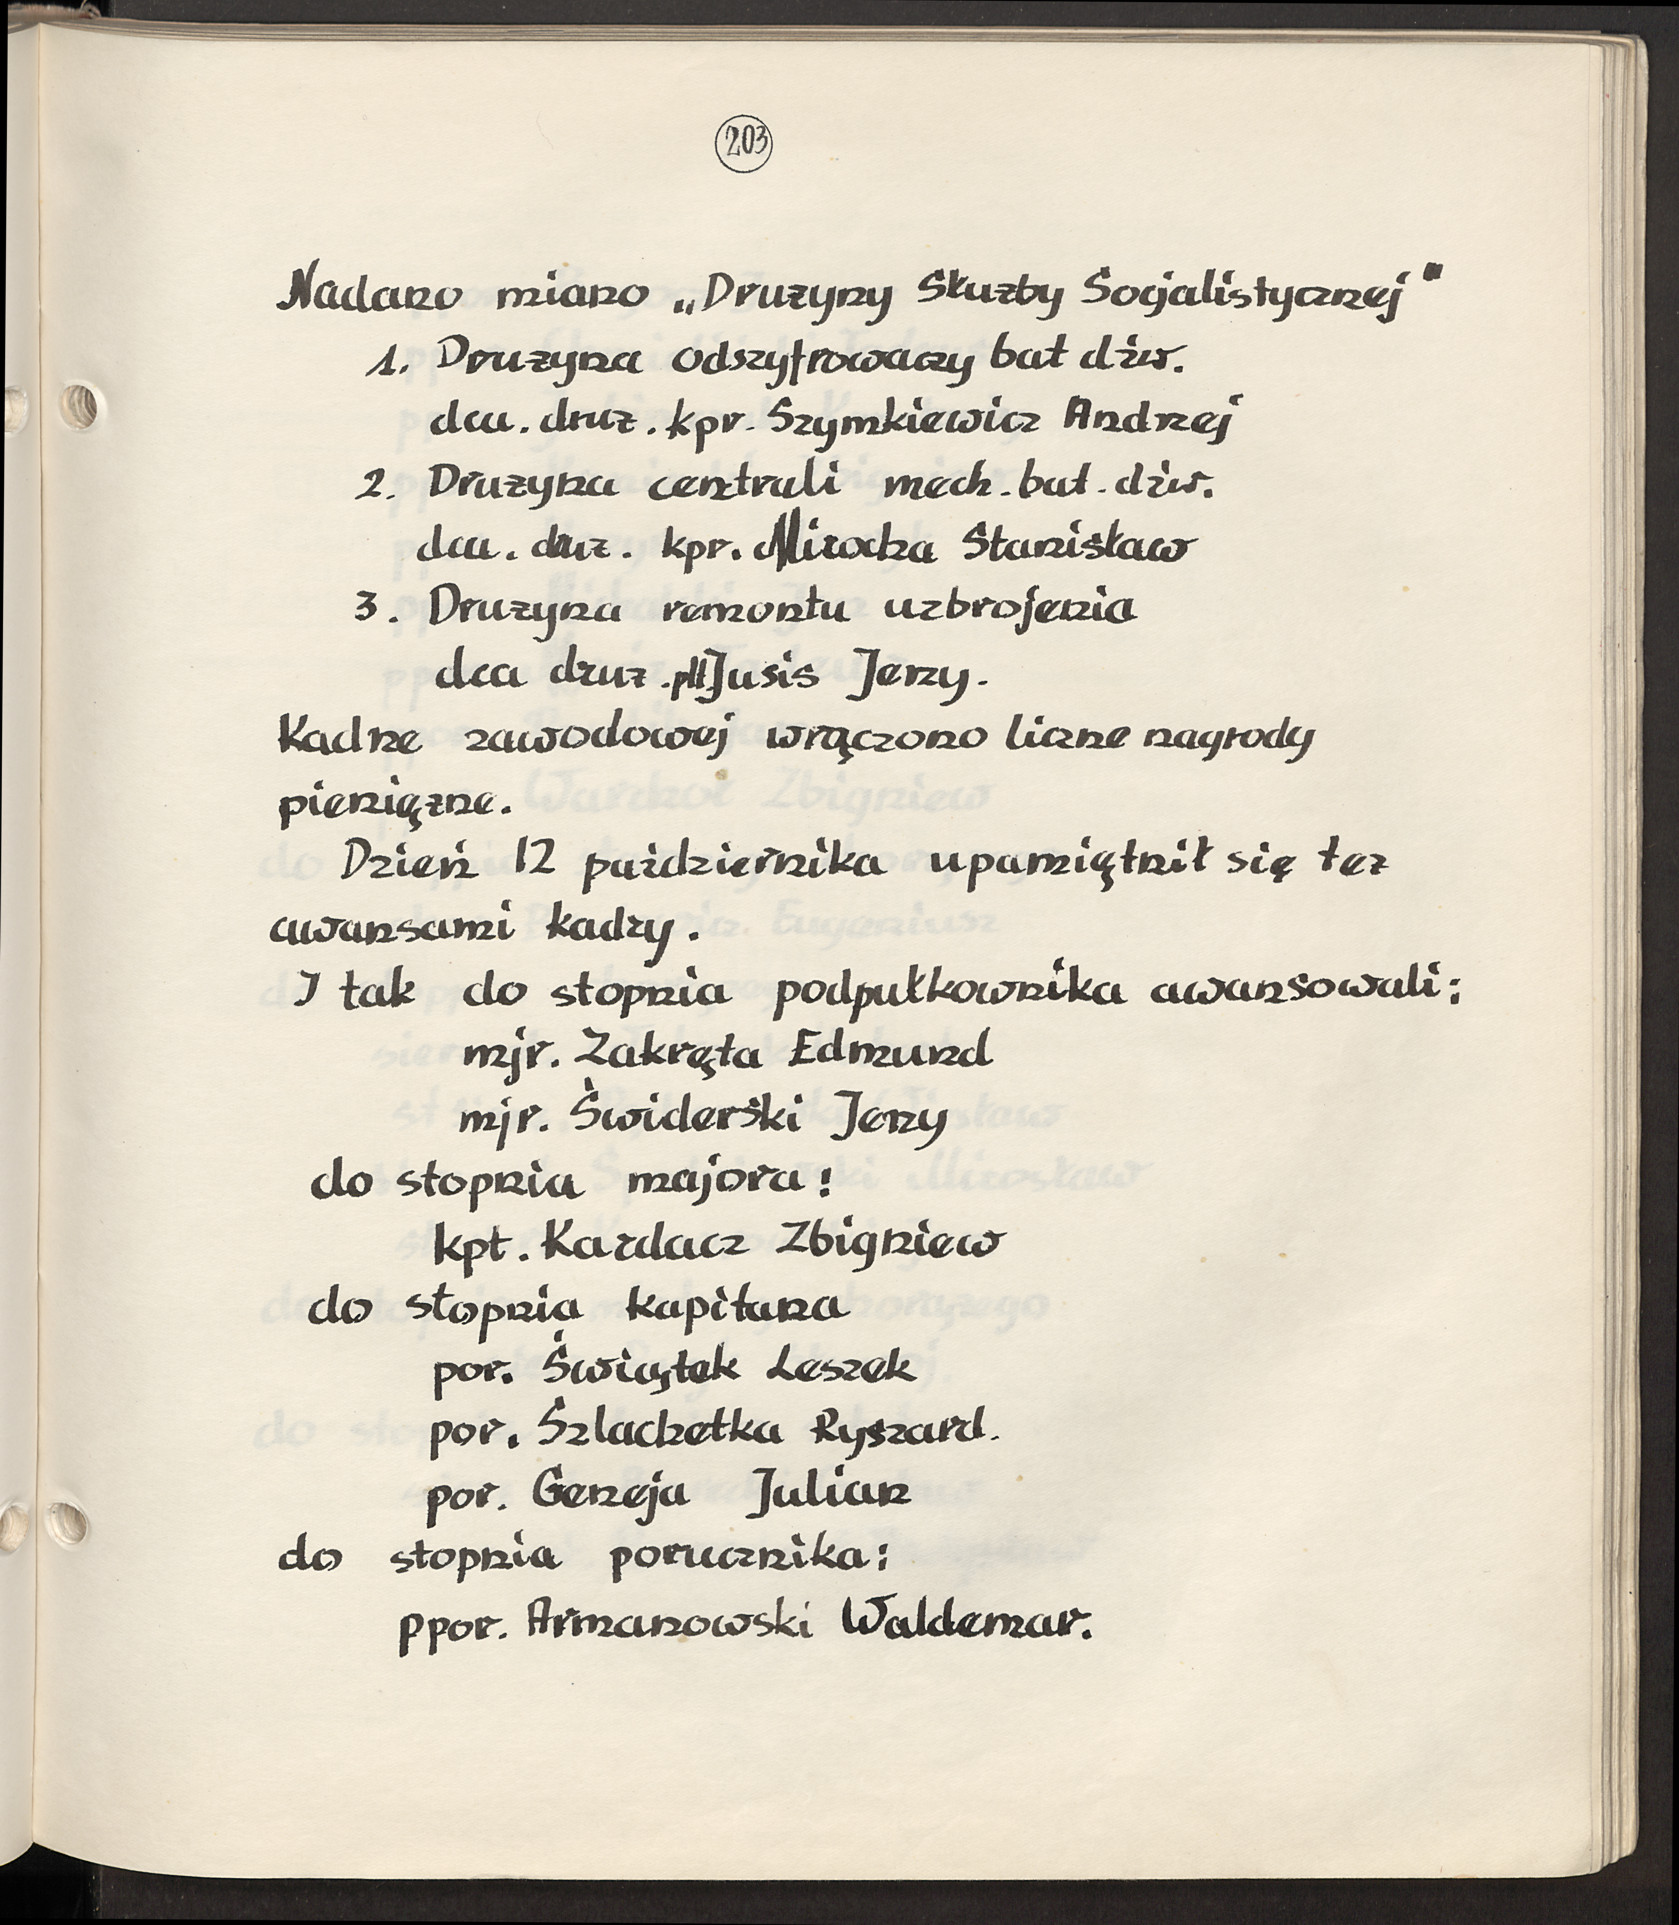 203
Nadano miano „Drużyny Służby Socjalistycznej"
1. Drużyna odszyfrowaczy bat dżw.
dca. druż. kpr. Szymkiewicz Andrzej
2. Drużyna centrali mech. bat. dżw.
dca. druż. kpr. Mirocha Stanisław
3. Drużyna remontu uzbrojenia
dca druż. plt. Jusis Jerzy.
Kadrze zawodowej wręczono liczne nagrody
pieniężne.
Dzień 12 października upamiętnił się też
awansami kadry.
I tak do stopnia podpułkownika awansowali:
mjr. Zakręta Edmund
mjr. Świderski Jerzy
do stopnia majora:
kpt. Kardacz Zbigniew
do stopnia kapitana
por. Świątek Leszek
por. Szlachetka Ryszard.
por. Geneja Julian
do stopnia porucznika:
ppor. Armanowski Waldemar.